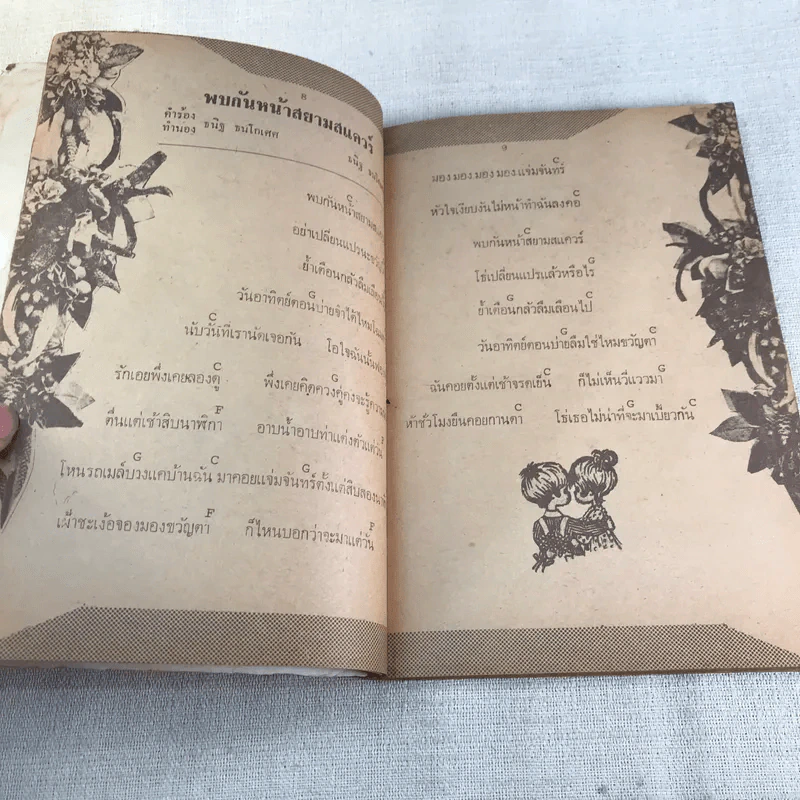 8
พบกันหน้าสยามสแควร์
คำร้อง
ทำนอง ธนิฐ ธนโกเศศ
ธนิฐ
C
พบกันหน้าสยามสแคว
อย่าเปลี่ยนแปรนะขวัญ
C
ย้ำเตือนกลัวลืมเลือน
G
วันอาทิตย์ตอนบ่ายจำได้ไหม
C
นับวันที่เรานัดเจอกัน โอใจฉันนั้น
C G
รักเอยพึ่งเคยลองดู พึ่งเคยคิดควงคู่คงจะรู้ความ
F
ตื่นแต่เช้าสิบนาฬิกา อาบน้ำอาบท่าแต่งตัวแต่วัน
G C G
โหนรถเมล์บึ่งแถวบ้านฉัน มาคอยแจ่มจันทร์ตั้งแต่สิบสอง
F F
เผ้าชะเง้อจ้องมองขวัญตา ก็ไหนบอกว่าจะมาแต่วัน
9
C
มอง มอง มอง มอง แจ่มจันทร์
C
หัวใจเงียบงันไม่หน้าทำฉันลงคอ
C
พบกันหน้าสยามสแควร์
G
โช่เปลี่ยนแปรแล้วหรือไร
G C
ย้ำเตือนกลัวลืมเลือนไป
G C
วันอาทิตย์ตอนบ่ายลืมใช่ไหมขวัญตา
C G
ฉันคอยตั้งแต่เช้าจรดเย็น ก็ไม่เห็นวี่แววมา
C G C
ห้าชั่วโมงยืนคอยกานดา โช่เธอไม่น่าที่จะมาเบี้ยวกัน